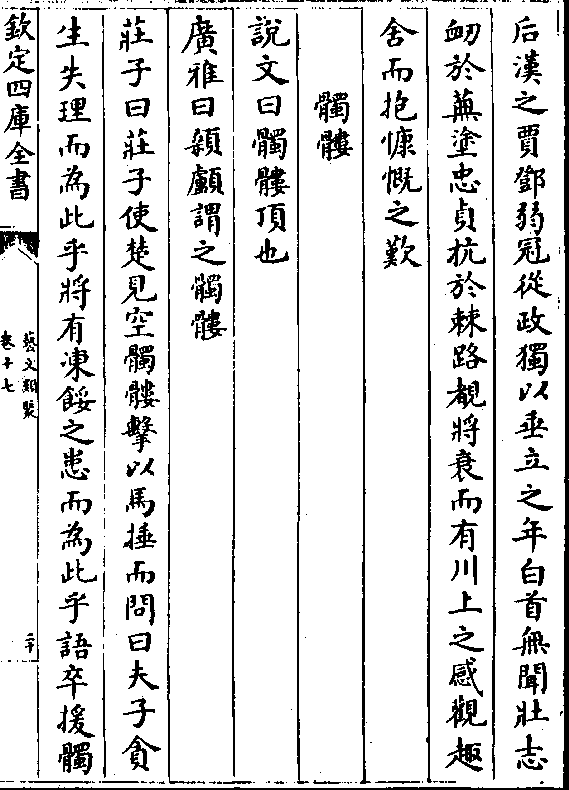 后漢之賈鄧弱冠從政獨以垂立之年白首無聞壯志
衂於蕪塗忠貞抗於棘路覩將衰而有川上之感觀趣
舍而抱慷慨之歎
髑髏
說文曰髑髏頂也
廣雅曰顙顱謂之髑髏
莊子曰莊子使楚見空髑髏擊以馬捶而問曰夫子貪
生失理而為此乎將有凍餒之患而為此乎語卒援髑
欽定四庫全書
藝文類聚
卷十七
二十